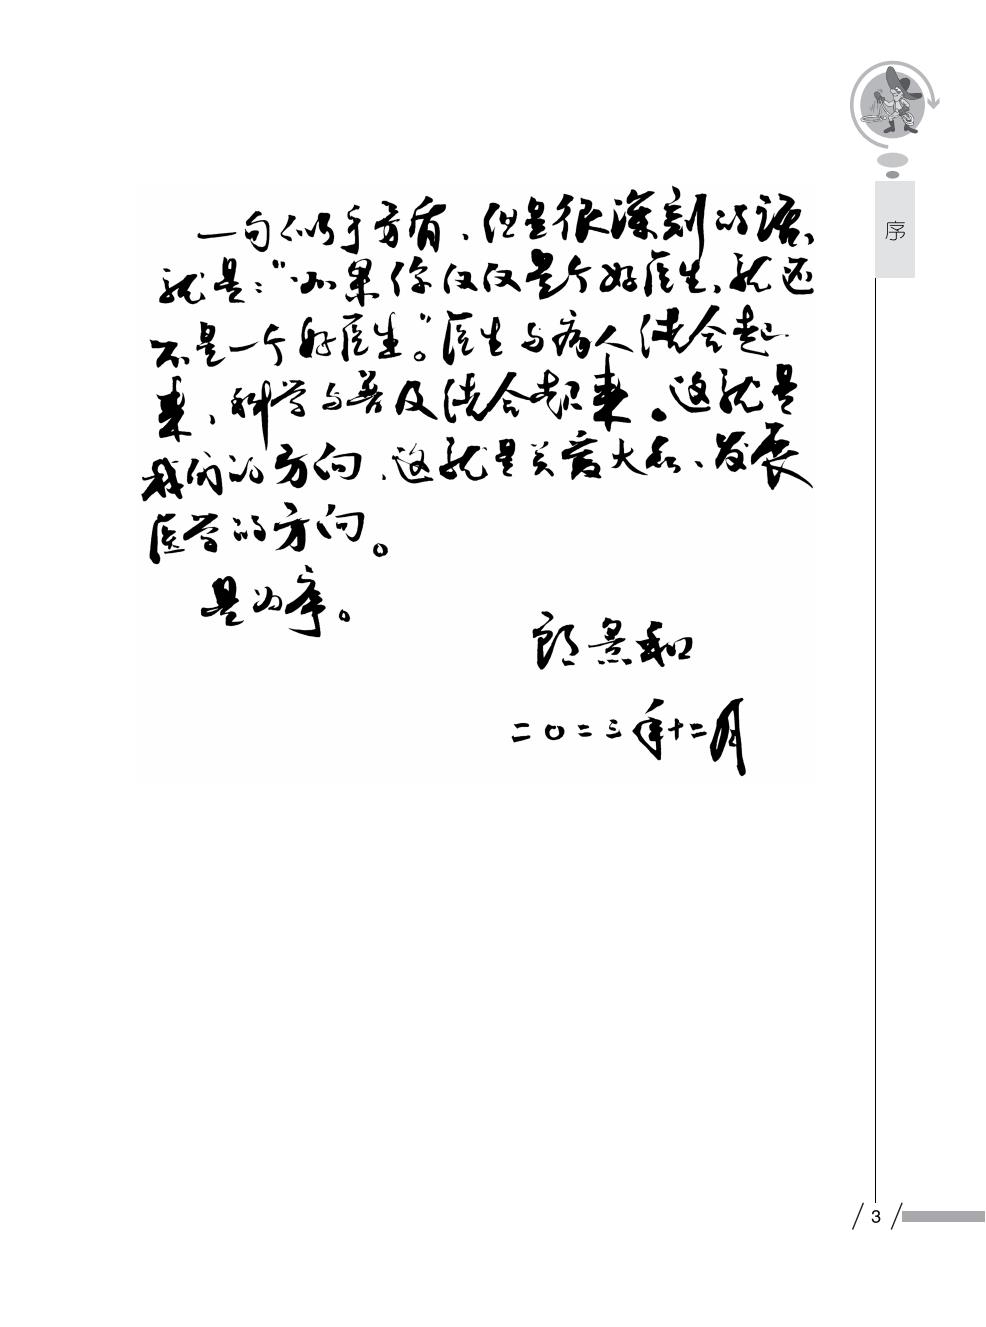 序
一句似乎矛盾、但是很深刻的话，
就是：“如果你仅仅是个好医生，就还
不是一个好医生。”医生与病人结合起
来，科学与普及结合起来。这就是
我们的方向，这就是关爱大众、发展
医学的方向。
是为序。
郎景和
二〇二三年十二月
3